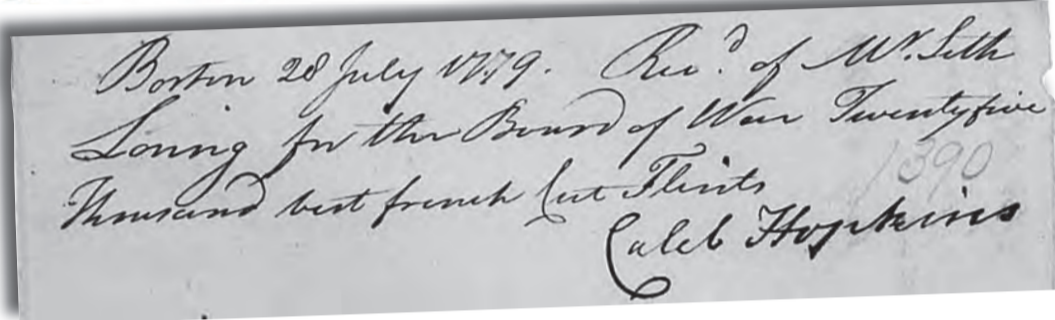 Boston 28 July 1779. Rec.d of Mr. Seth
Loring for the Board of War Twentyfive
Thousand best french Cut Flints
1390
Caleb Hopkins